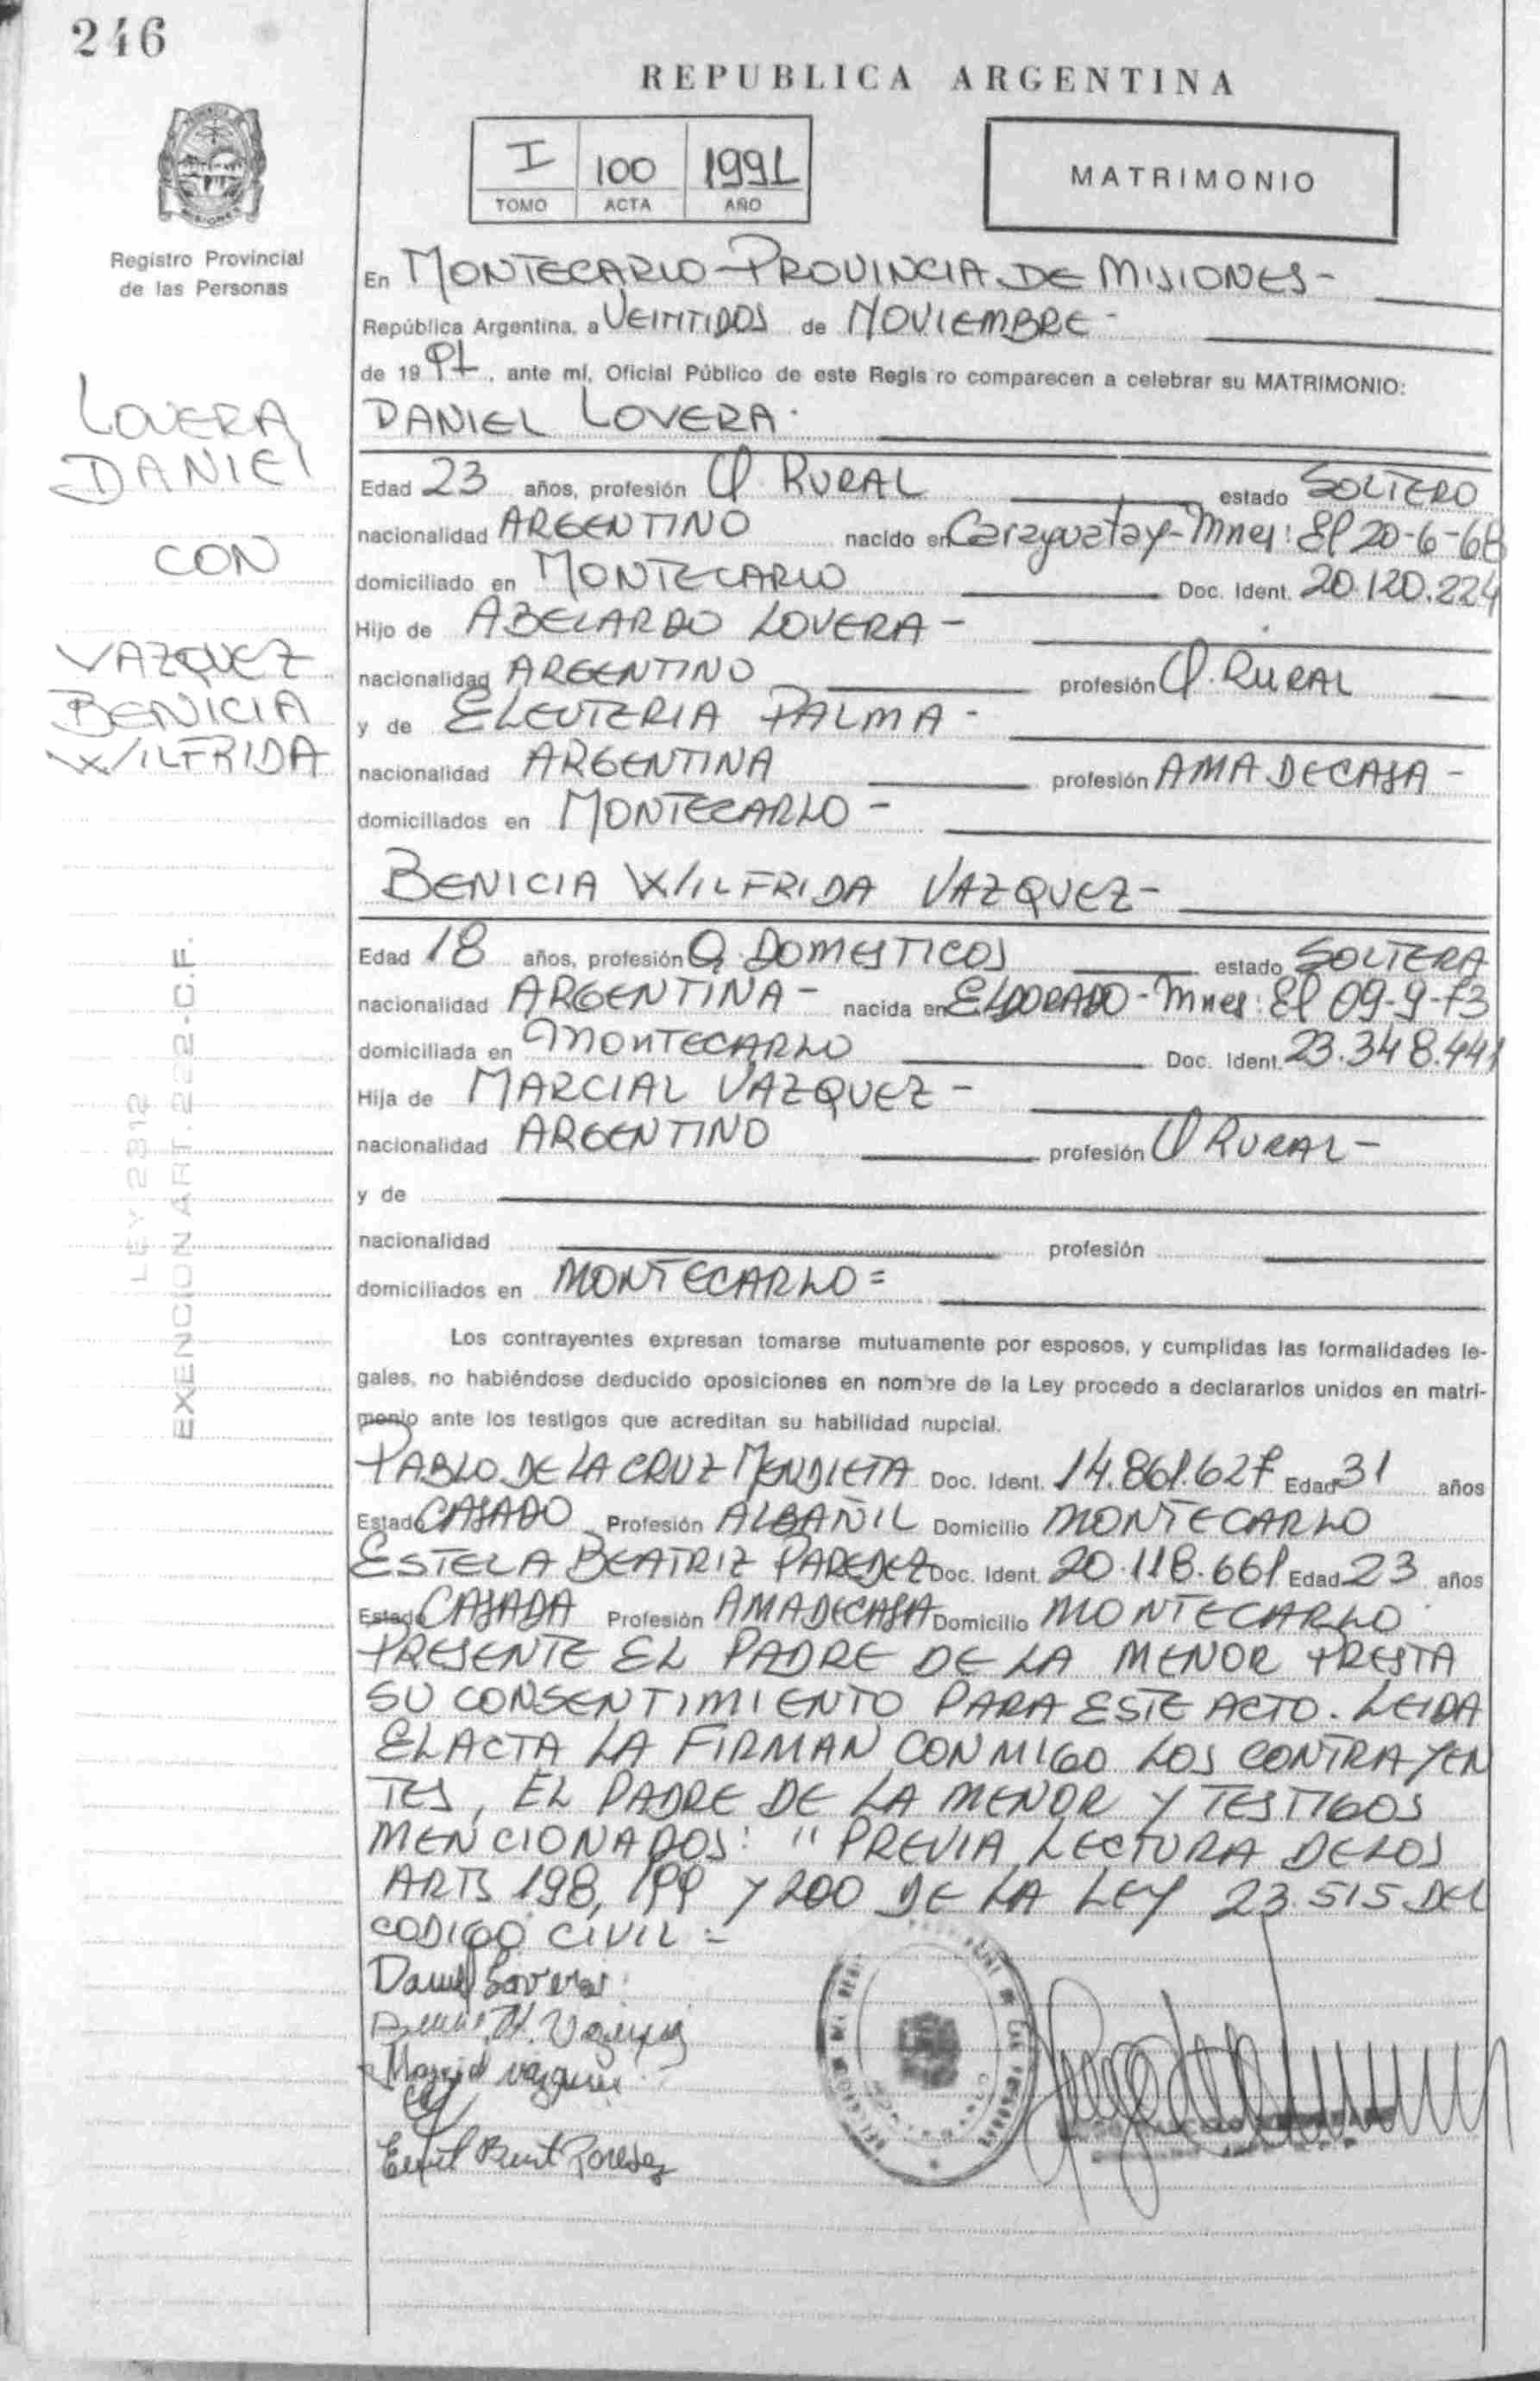 246
REPUBLICA ARGENTINA
I 100 1991
TOMO ACTA AÑO
MATRIMONIO
Registro Provincial
de las Personas
LOVERA
DANIEL
CON
VAZQUEZ
BENICIA
WILFRIDA
LEY 2312
EXENCION ART. 222-C.F.
En MONTECARLO-PROVINCIA DE MISIONES-
República Argentina, a VEINTIDOS de NOVIEMBRE-
de 1991, ante mí, Oficial Público de este Regis ro comparecen a celebrar su MATRIMONIO:
DANIEL LOVERA-
Edad 23 años, profesión O. RURAL estado SOLTERO
nacionalidad ARGENTINO nacido en Caraguatay-Mnes: El 20-6-68
domiciliado en MONTECARLO Doc. Ident. 20.120.224
Hijo de ABELARDO LOVERA-
nacionalidad ARGENTINO profesión O. RURAL
y de ELEUTERIA PALMA-
nacionalidad ARGENTINA profesión AMA DE CASA-
domiciliados en MONTECARLO-
BENICIA WILFRIDA VAZQUEZ-
Edad 18 años, profesión Q. DOMESTICOS estado SOLTERA
nacionalidad ARGENTINA- nacida en ELDORADO-Mnes: El 09-9-73
domiciliada en MONTECARLO Doc. Ident. 23.348.441
Hija de MARCIAL VAZQUEZ-
nacionalidad ARGENTINO profesión O RURAL-
y de
nacionalidad profesión
domiciliados en MONTECARLO=
Los contrayentes expresan tomarse mutuamente por esposos, y cumplidas las formalidades le-
gales, no habiéndose deducido oposiciones en nombre de la Ley procedo a declararlos unidos en matri-
monio ante los testigos que acreditan su habilidad nupcial.
PABLO DE LA CRUZ MENDIETA Doc. Ident. 14.861.627 Edad 31 años
Estado CASADO Profesión ALBAÑIL Domicilio MONTECARLO
ESTELA BEATRIZ PAREDEZ Doc. Ident. 20.118.661 Edad 23 años
Estado CASADA Profesión AMA DE CASA Domicilio MONTECARLO
PRESENTE EL PADRE DE LA MENOR PRESTA
SU CONSENTIMIENTO PARA ESTE ACTO. LEIDA
EL ACTA LA FIRMAN CONMIGO LOS CONTRAYEN
TES, EL PADRE DE LA MENOR Y TESTIGOS
MENCIONADOS: "PREVIA LECTURA DE LOS
ARTS 198, 199 Y 200 DE LA LEY 23.515 DEL
CODIGO CIVIL=
Daniel Lovera